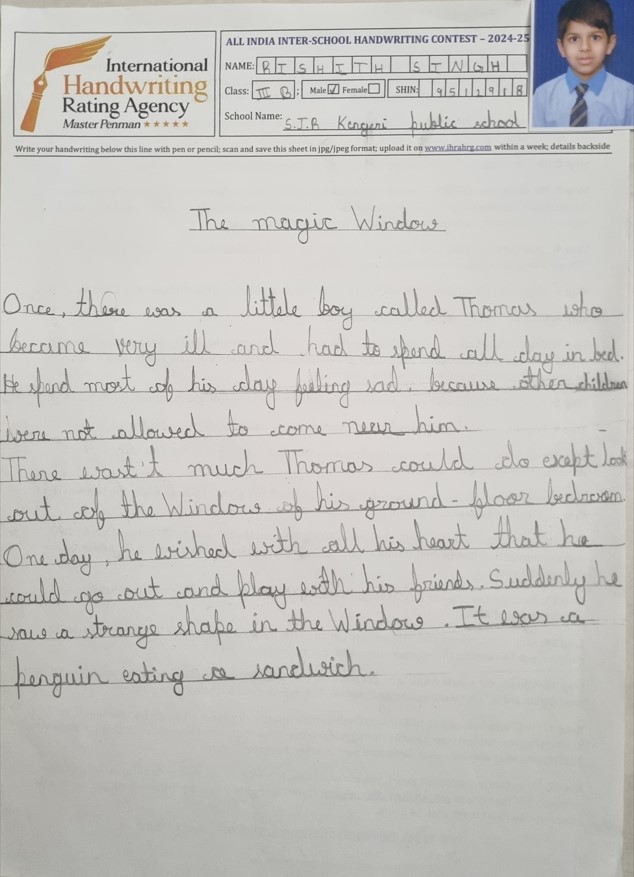 ALL INDIA INTER-SCHOOL HANDWRITING CONTEST – 2024-25
International
Handwriting
Rating Agency
Master Penman ★★★★★
NAME: RISHITH SINGH
Class: III B Male ☑ Female ☐ SHIN: 9511291B
School Name: S.T.R public school
Write your handwriting below this line with pen or pencil; scan and save this sheet in jpg/jpeg format; upload it on www.ihrahrg.com within a week; details backside
The magic Window
Once, there was a littele boy called Thomas who
became very ill and had to spend all day in bed.
He spend most of his day feeling sad, because other children
were not allowed to come near him.
There wast't much Thomas could do exept look
out of the Window of his ground-floor bedroom.
One day, he wished with all his heart that he
could go out and play with his friends. Suddenly he
saw a strange shape in the Window. It was a
penguin eating a sandwich.